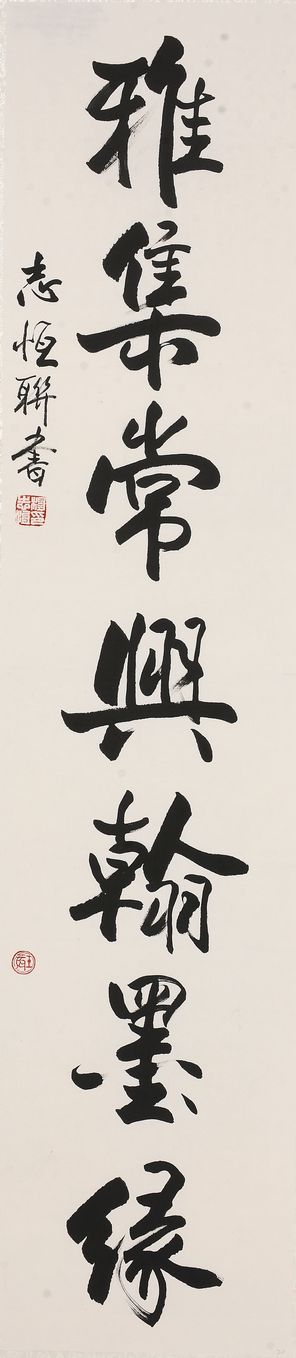 雅集常興翰墨緣
志恒聯書